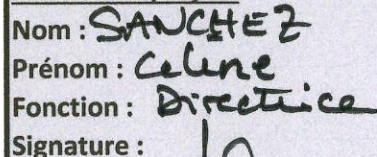 Nom : SANCHEZ
Prénom : Celine
Fonction : Directrice
Signature :